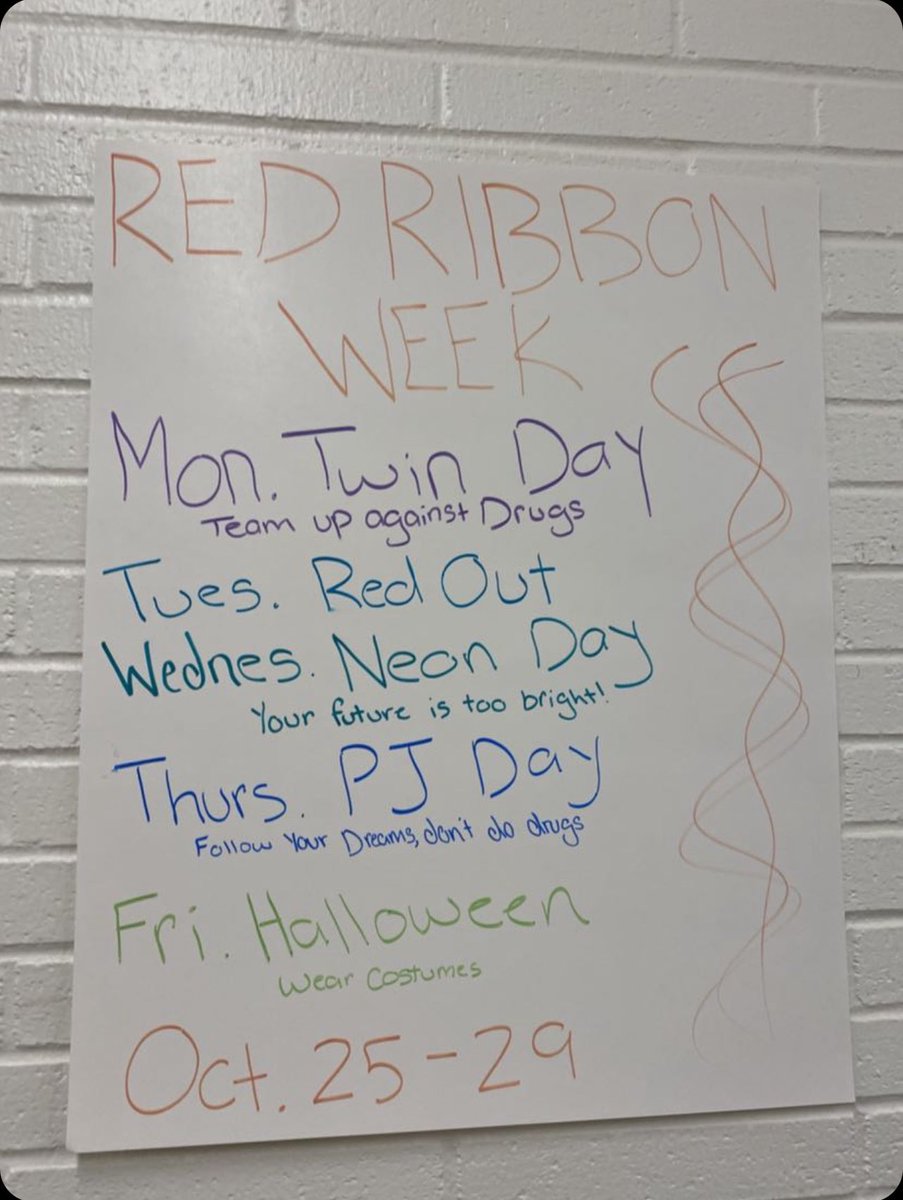 RED RIBBON
WEEK
Mon. Twin Day
Team up against Drugs
Tues. Red Out
Wednes. Neon Day
Your future is too bright!
Thurs. PJ Day
Follow Your Dreams, don't do drugs
Fri. Halloween
Wear Costumes
Oct. 25-29